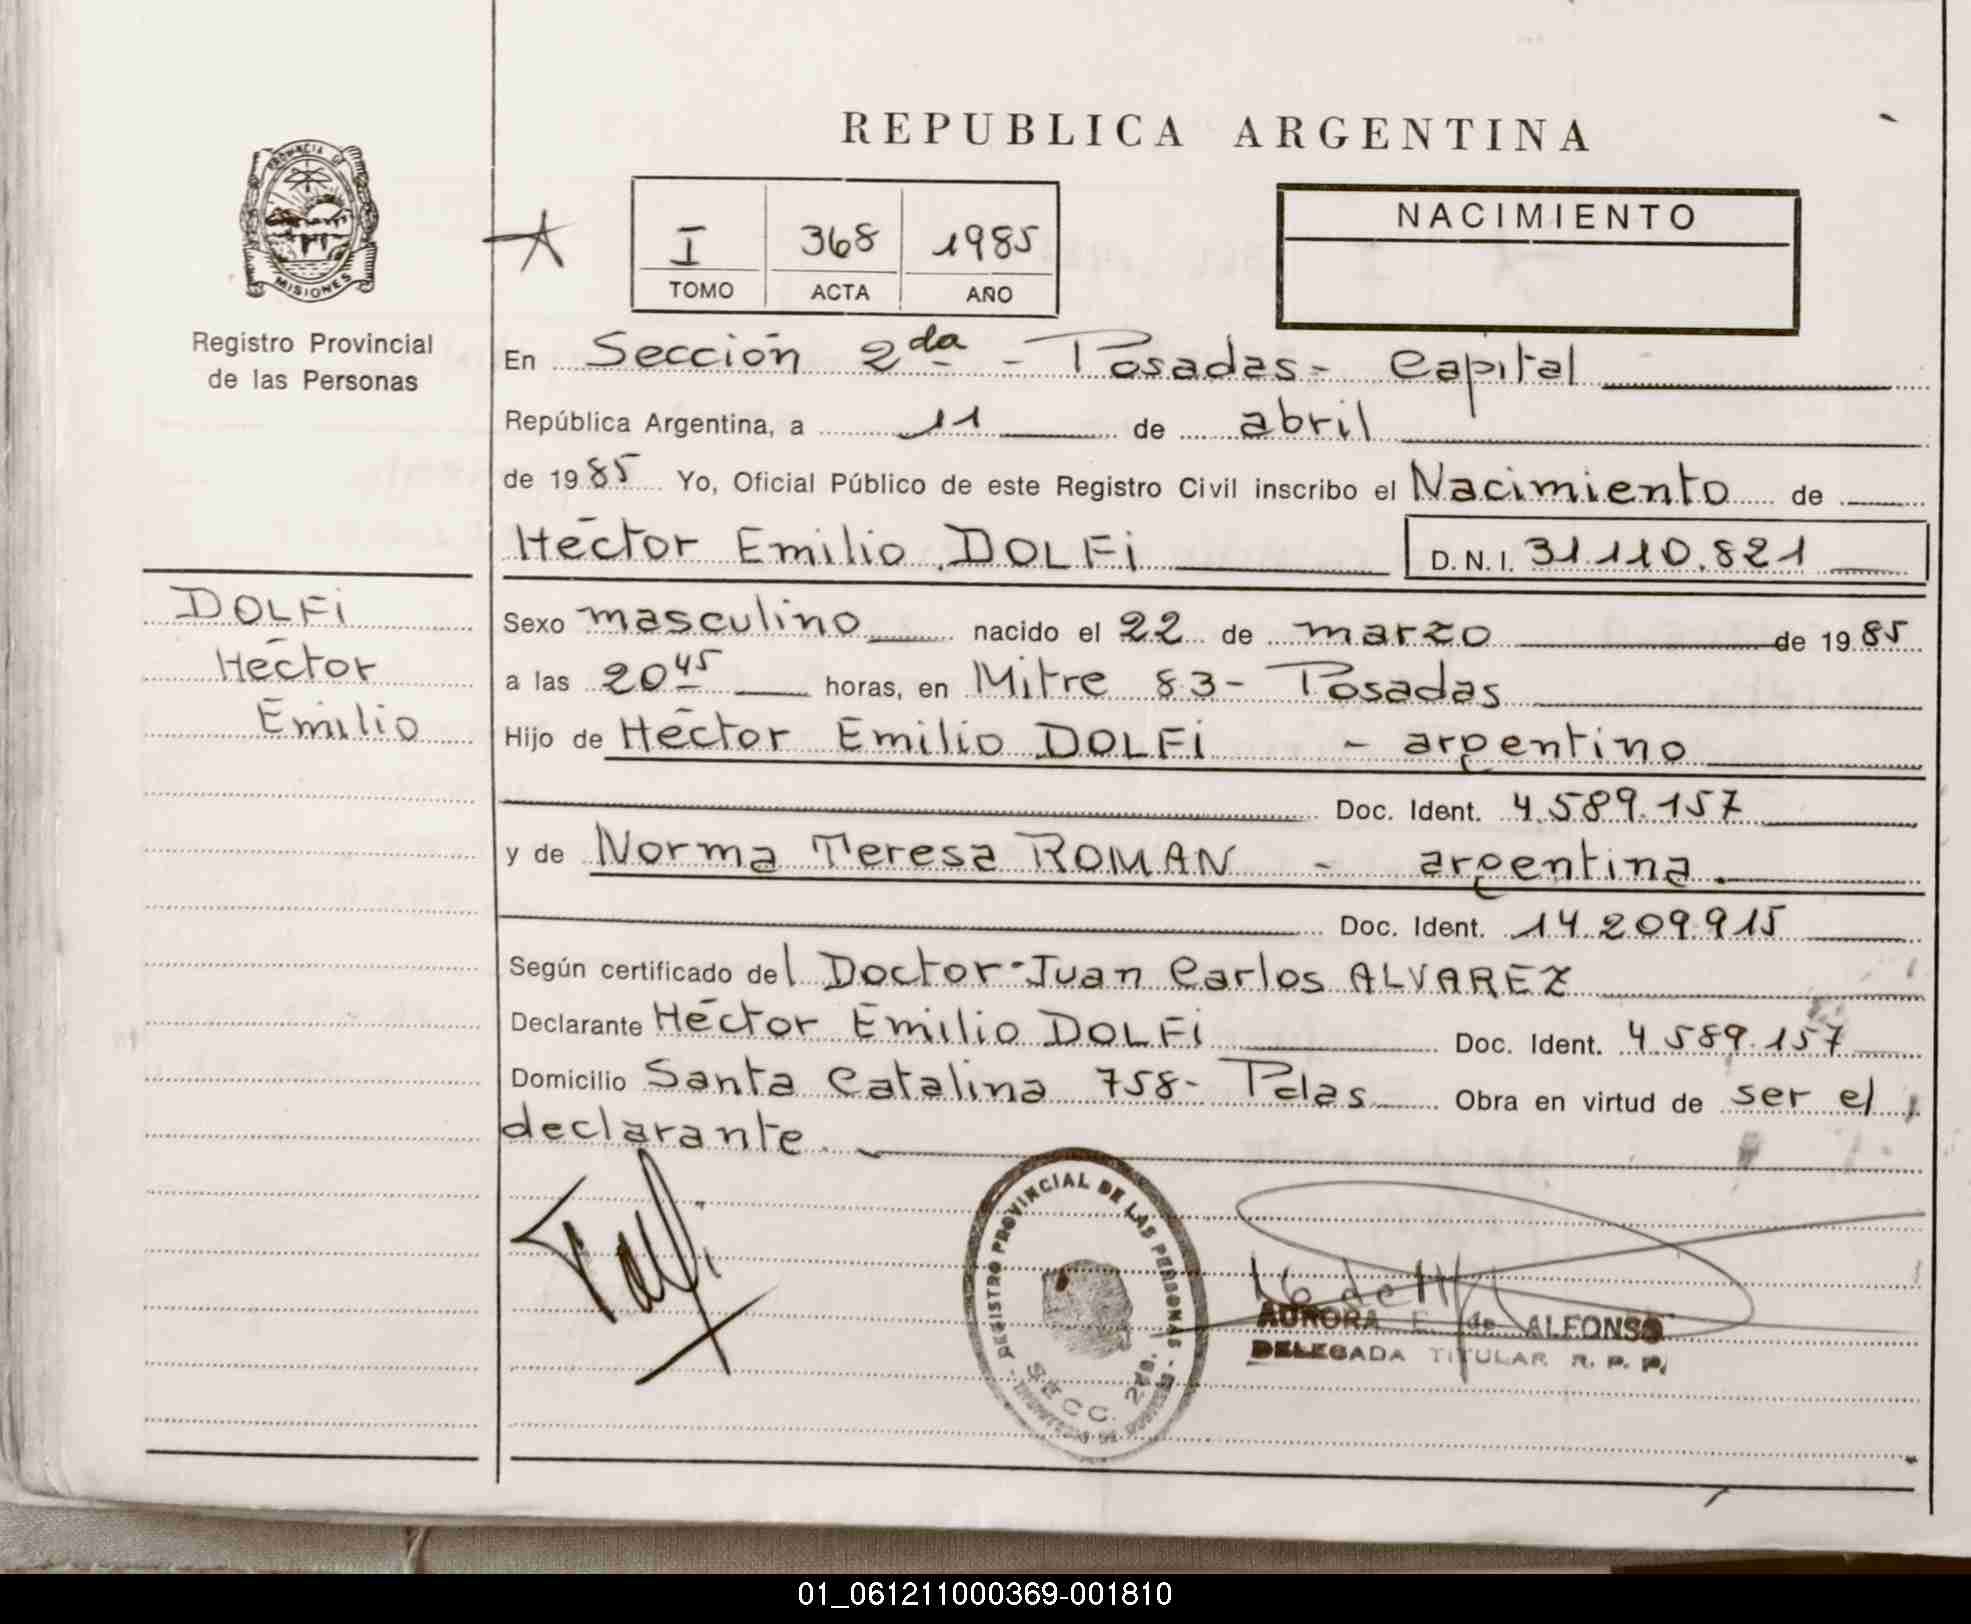 REPUBLICA ARGENTINA
PROVINCIA DE
MISIONES
Registro Provincial
de las Personas
I 368 1985
TOMO ACTA AÑO
NACIMIENTO
En Sección 2da - Posadas - Capital
República Argentina, a 11 de abril
de 1985 Yo, Oficial Público de este Registro Civil inscribo el Nacimiento de
Héctor Emilio DOLFi D.N.I. 31.110.821
DOLFi
Héctor
Emilio
Sexo masculino nacido el 22 de marzo de 1985
a las 20 45 horas, en Mitre 83 - Posadas
Hijo de Héctor Emilio DOLFi - argentino
Doc. Ident. 4.589.157
y de Norma Teresa ROMAN - argentina.
Doc. Ident. 14.209.915
Según certificado del Doctor Juan Carlos ALVAREZ
Declarante Héctor Emilio DOLFi Doc. Ident. 4.589.157
Domicilio Santa Catalina 758 - Pdas Obra en virtud de ser el
declarante.
REGISTRO PROVINCIAL DE LAS PERSONAS
SECC. 2da.
AURORA E. de ALFONSO
DELEGADA TITULAR R. P. P.
01_061211000369-001810